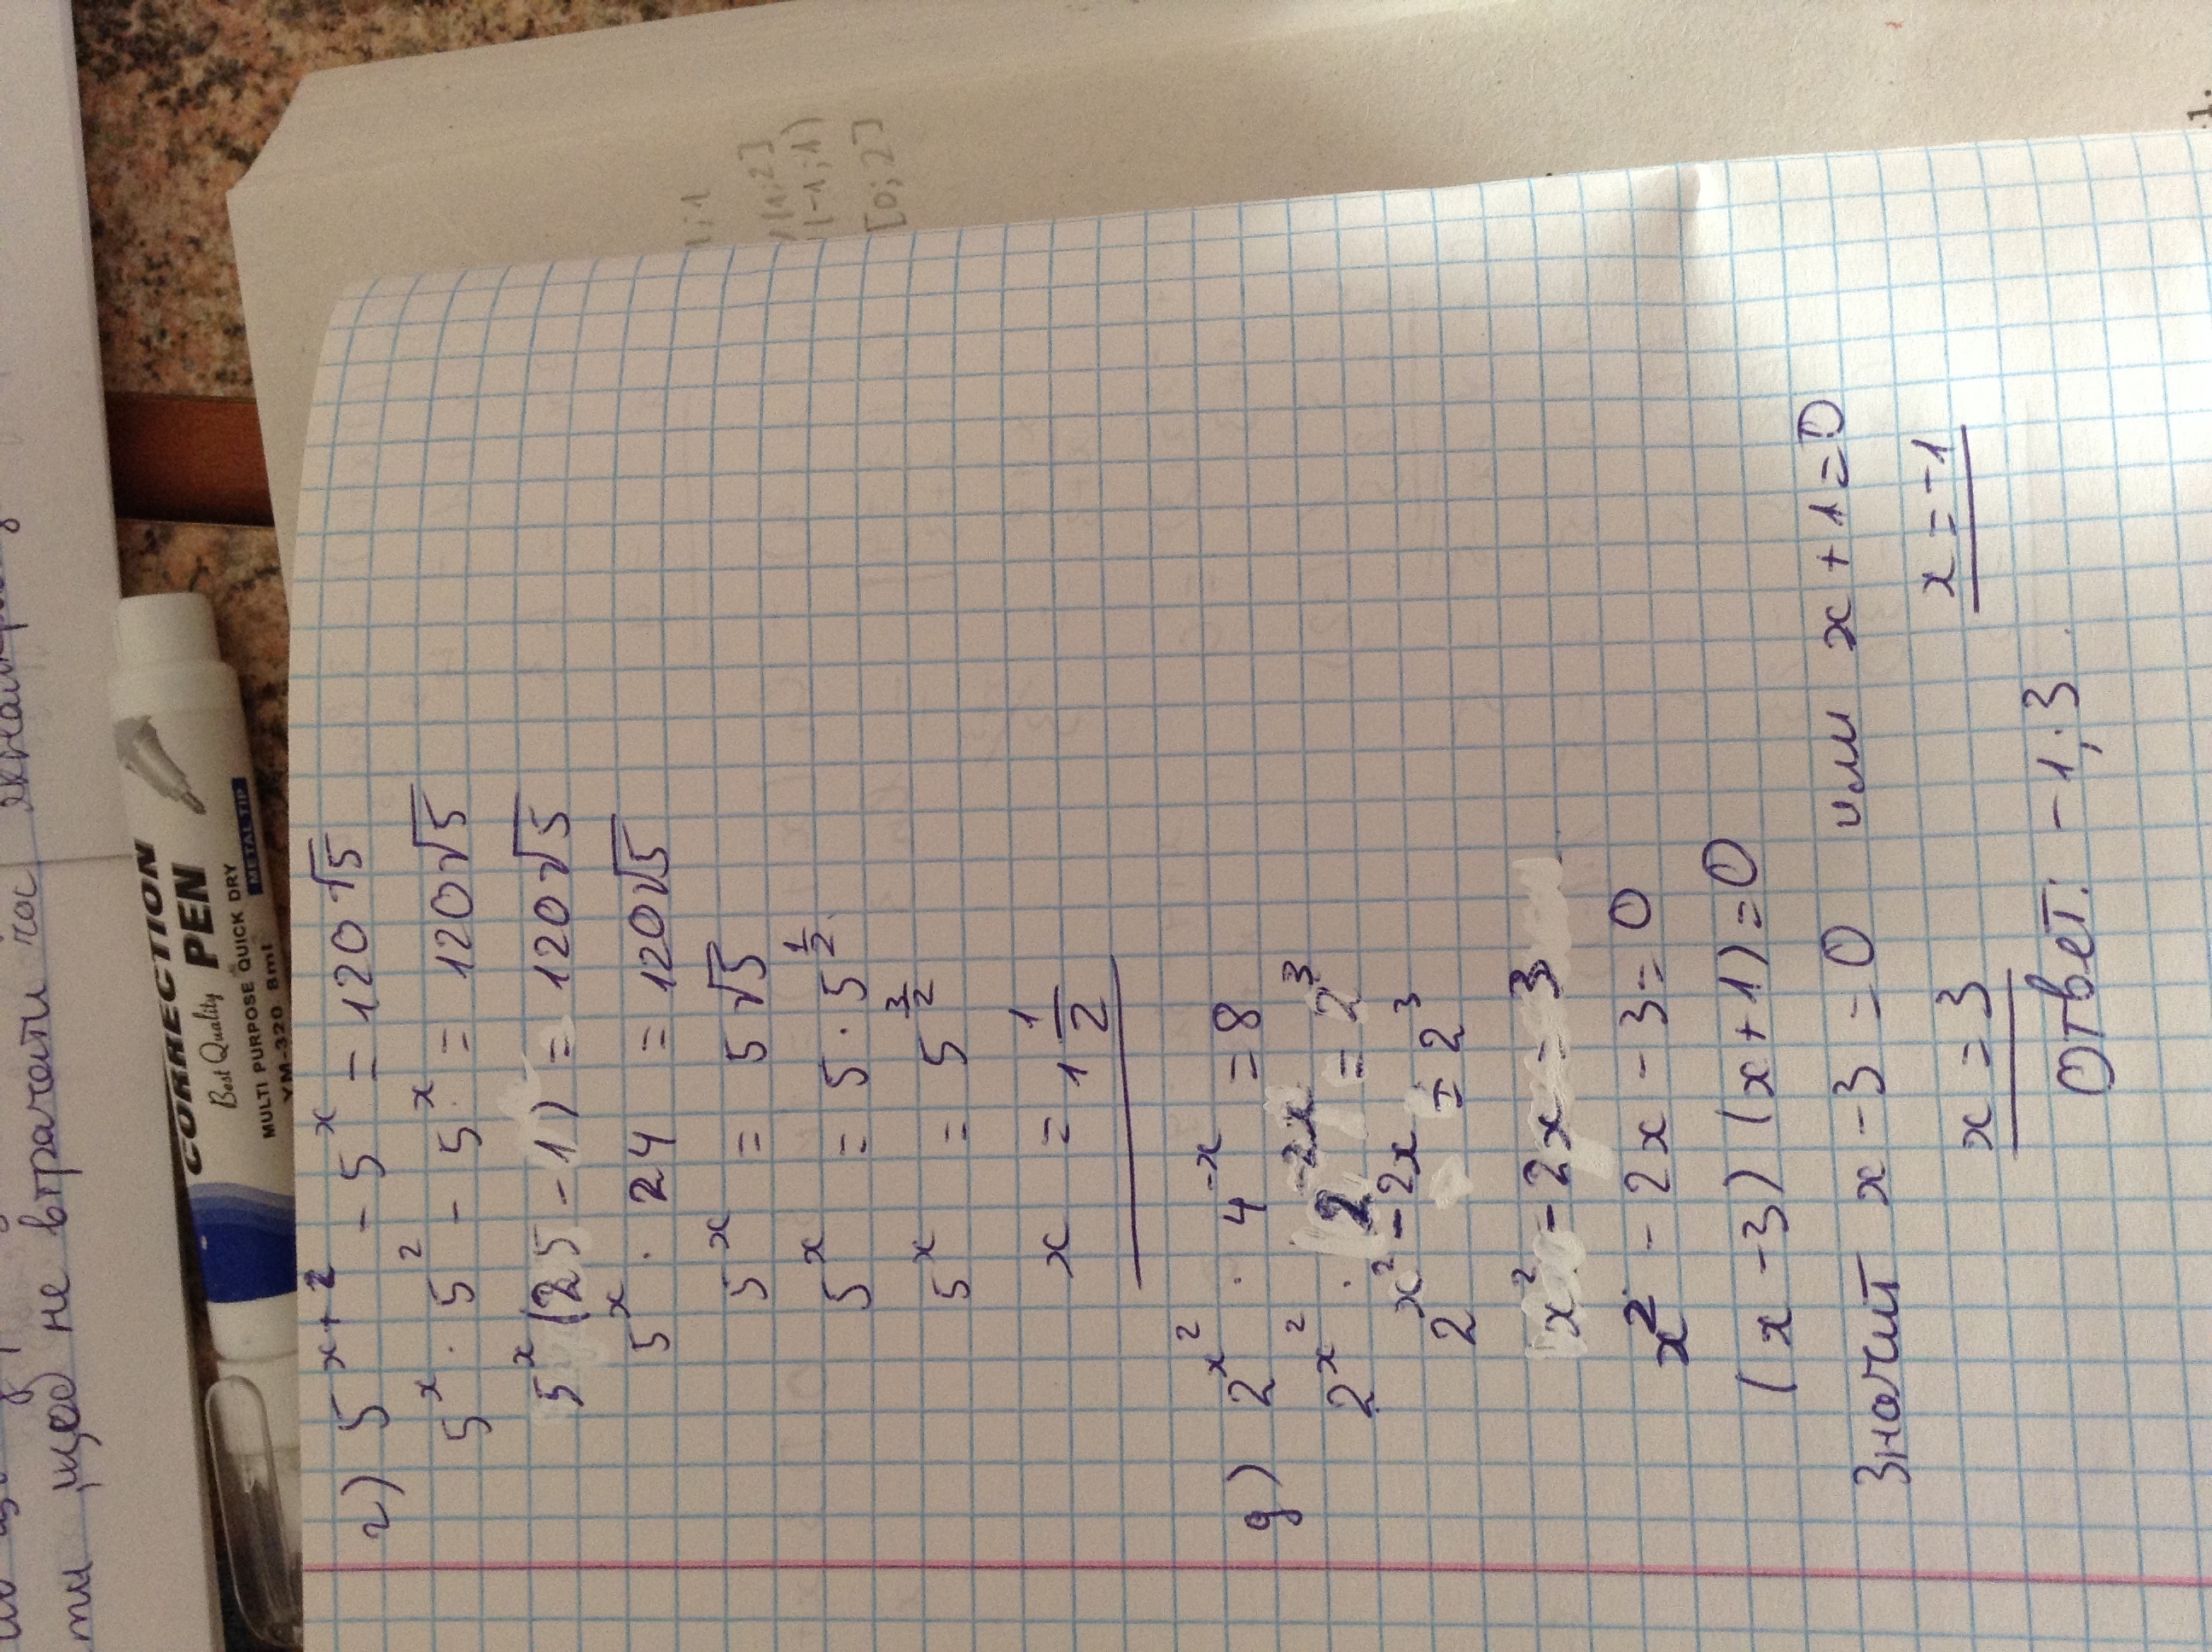 г) 5^{x+2} - 5^x = 120√5
5^x · 5^2 - 5^x = 120√5
5^x (25 - 1) = 120√5
5^x · 24 = 120√5
5^x = 5√5
5^x = 5 · 5^{1/2}
5^x = 5^{3/2}
x = 1 1/2
g) 2^{x^2} · 4^{-x} = 8
2^{x^2} · 2^{-2x} = 2^3
2^{x^2-2x} = 2^3
x^2 - 2x = 3
x^2 - 2x - 3 = 0
(x - 3) (x + 1) = 0
Значит x - 3 = 0 или x + 1 = 0
x = 3 x = -1
Ответ: -1; 3
CORRECTION
Best Quality PEN
MULTI PURPOSE QUICK DRY
YM-320 8ml METAL TIP
не втрачати час
1;1
(-1;1)
[0;2]
1.